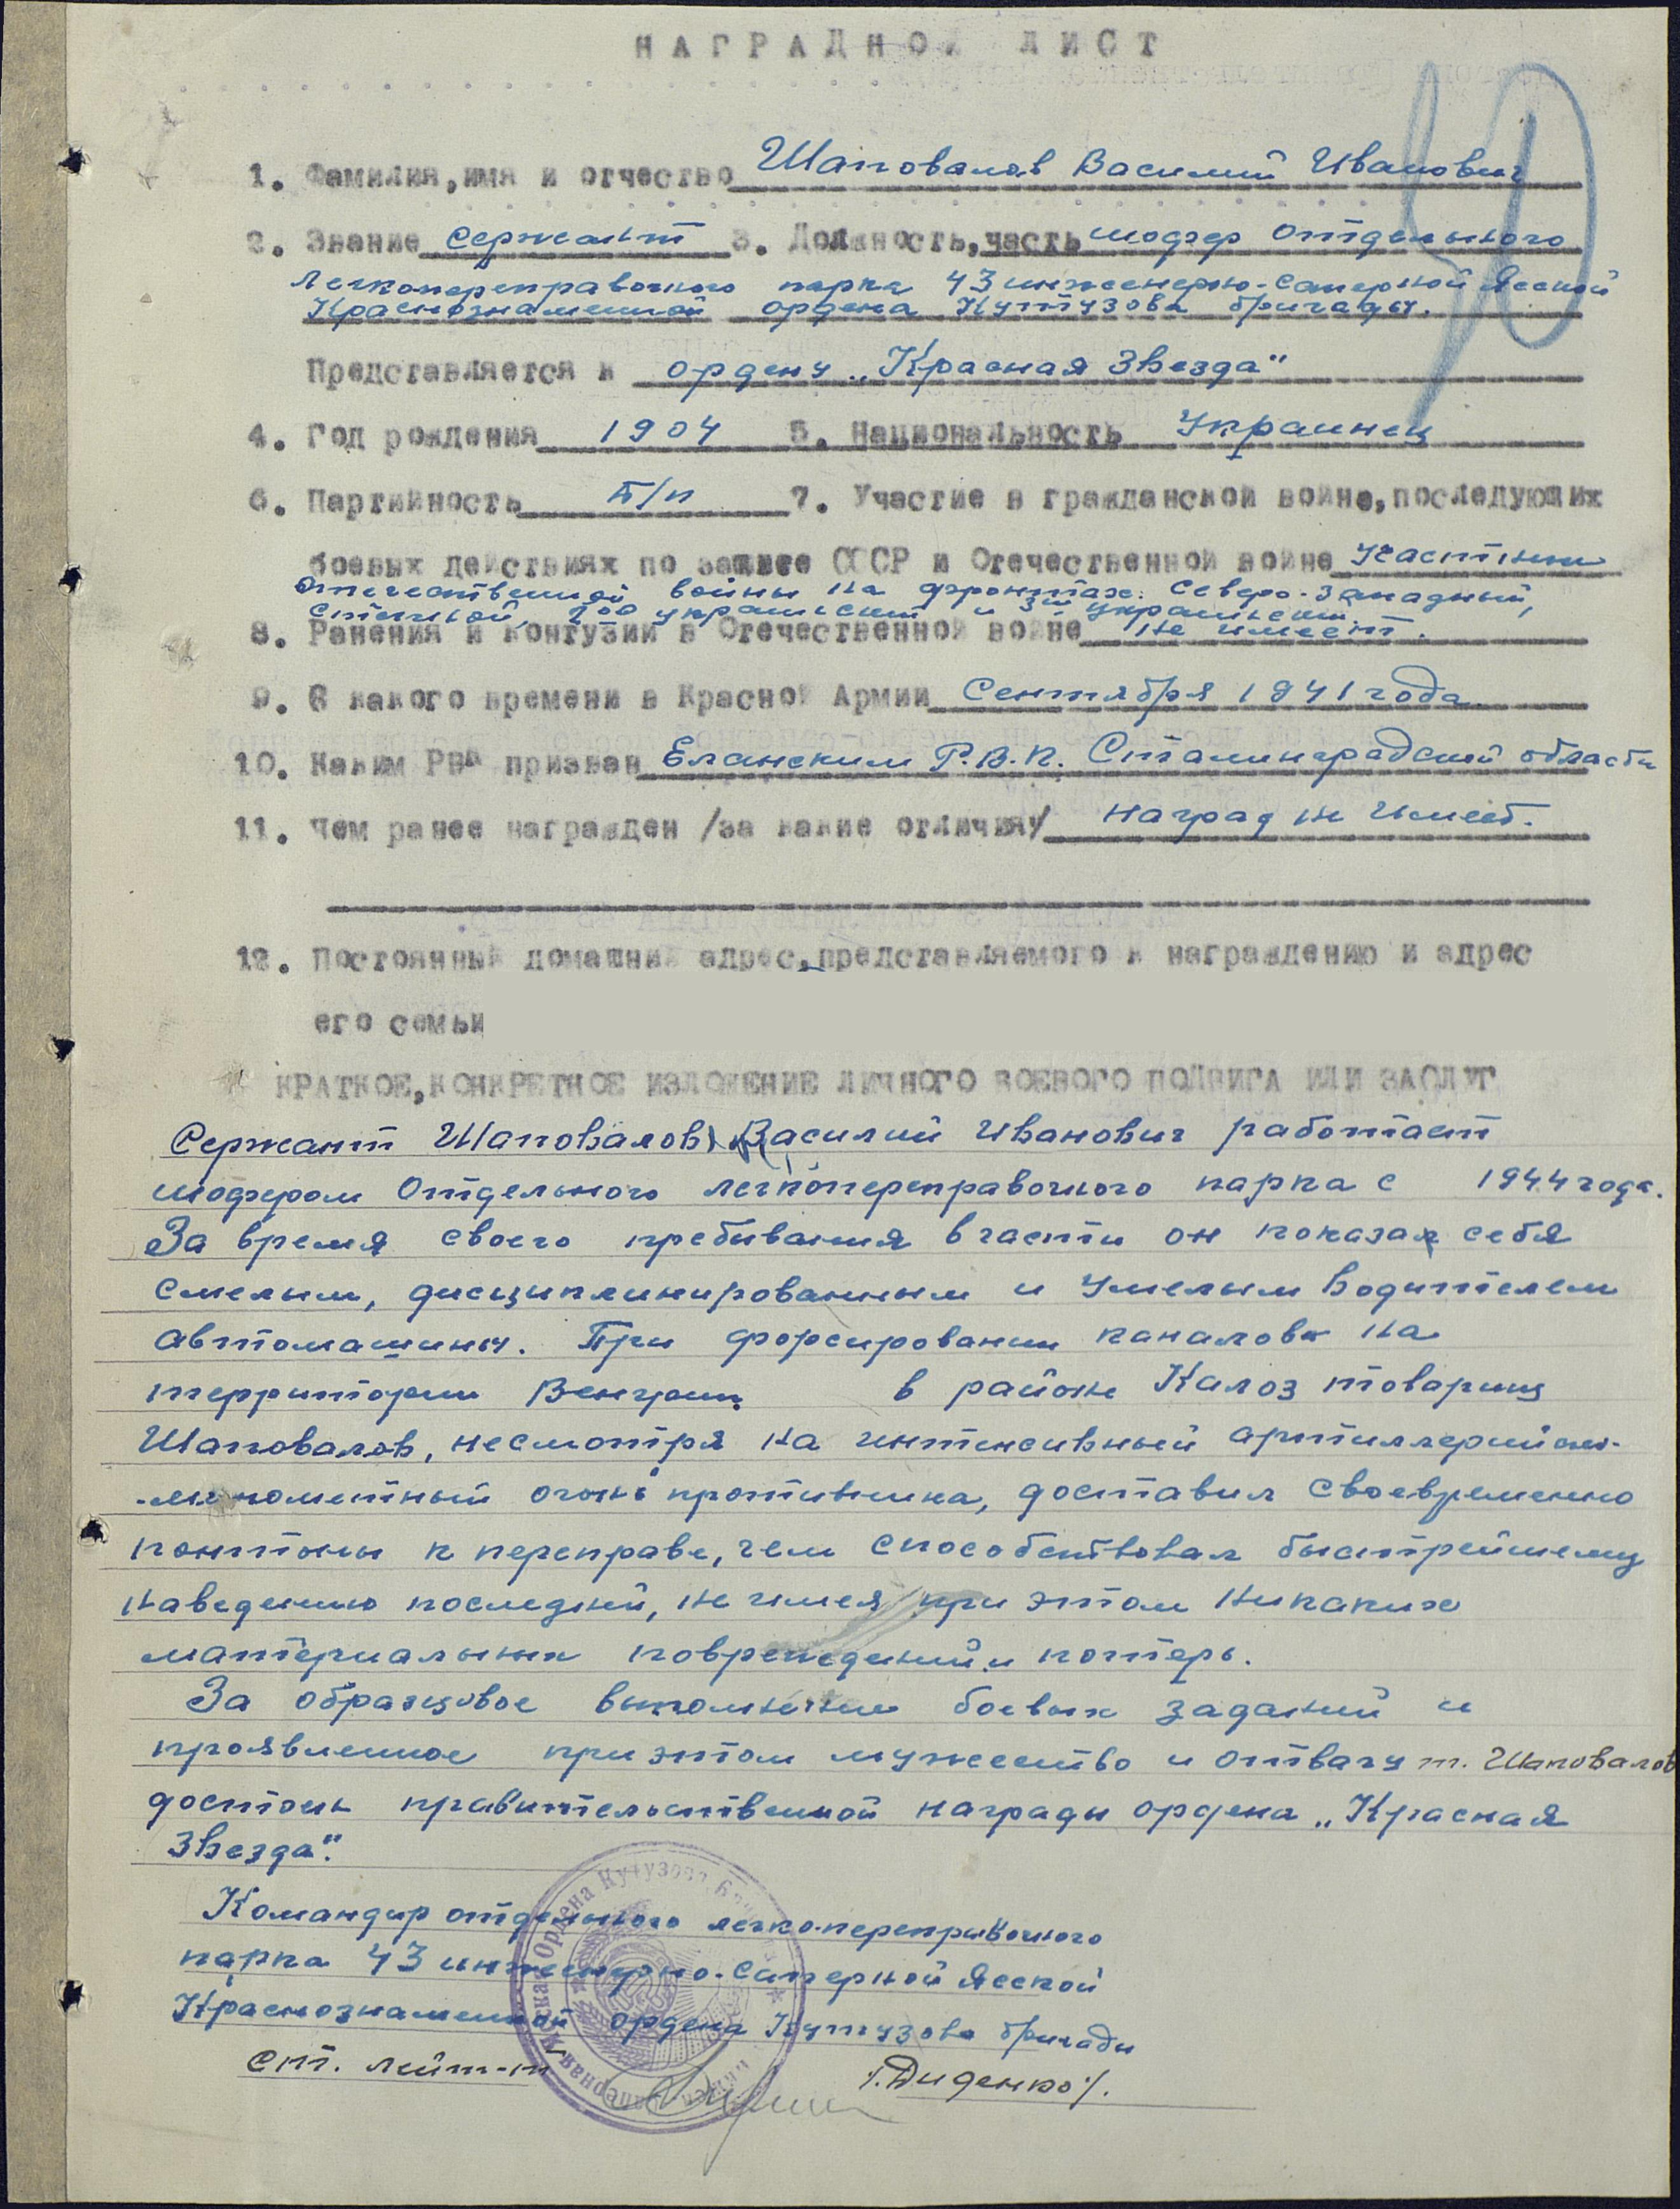 НАГРАДНОЙ ЛИСТ
1. Фамилия,имя и отчество Шаповалов Василий Иванович
2. Звание сержант 3. Должность,часть шофер отдельного
легкопереправочного парка 43 инженерно-саперной Ясской
Краснознаменной ордена Кутузова бригады.
Представляется к ордену „Красная Звезда"
4. Год рождения 1904 5. Национальность Украинец
6. Партийность Б/п 7. Участие в гражданской войне,последующих
боевых действиях по защите СССР и Отечественной войне Участник
отечественной войны на фронтах: Северо-Западный,
степной, 2ой украинский и 3й украинский.
8. Ранения и контузии в Отечественной войне не имеет.
9. С какого времени в Красной Армии Сентября 1941 года
10. Каким РВК призван Еланским Р.В.К. Сталинградской области
11. Чем ранее награжден /за какие отличия/ наград не имеет.
12. Постоянный домашний адрес,представляемого к награждению и адрес
его семьи
КРАТКОЕ,КОНКРЕТНОЕ ИЗЛОЖЕНИЕ ЛИЧНОГО БОЕВОГО ПОДВИГА ИЛИ ЗАСЛУГ
Сержант Шаповалов Василий Иванович работает
шофером Отдельного легкопереправочного парка с 1944 года.
За время своего пребывания в части он показал себя
смелым, дисциплинированным и умелым водителем
автомашины. При форсировании каналов на
территории Венгрии в районе Калоз товарищ
Шаповалов, несмотря на интенсивный артиллерийско-
-минометный огонь противника, доставил своевременно
понтоны к переправе, чем способствовал быстрейшему
наведению последней, не имея при этом никаких
материальных повреждений и потерь.
За образцовое выполнение боевых заданий и
проявленное при этом мужество и отвагу т. Шаповалов
достоин правительственной награды ордена „Красная
Звезда".
Командир отдельного легкопереправочного
парка 43 инженерно-саперной Ясской
Краснознаменной ордена Кутузова бригады
ст. лейт-т /.Диденко/.